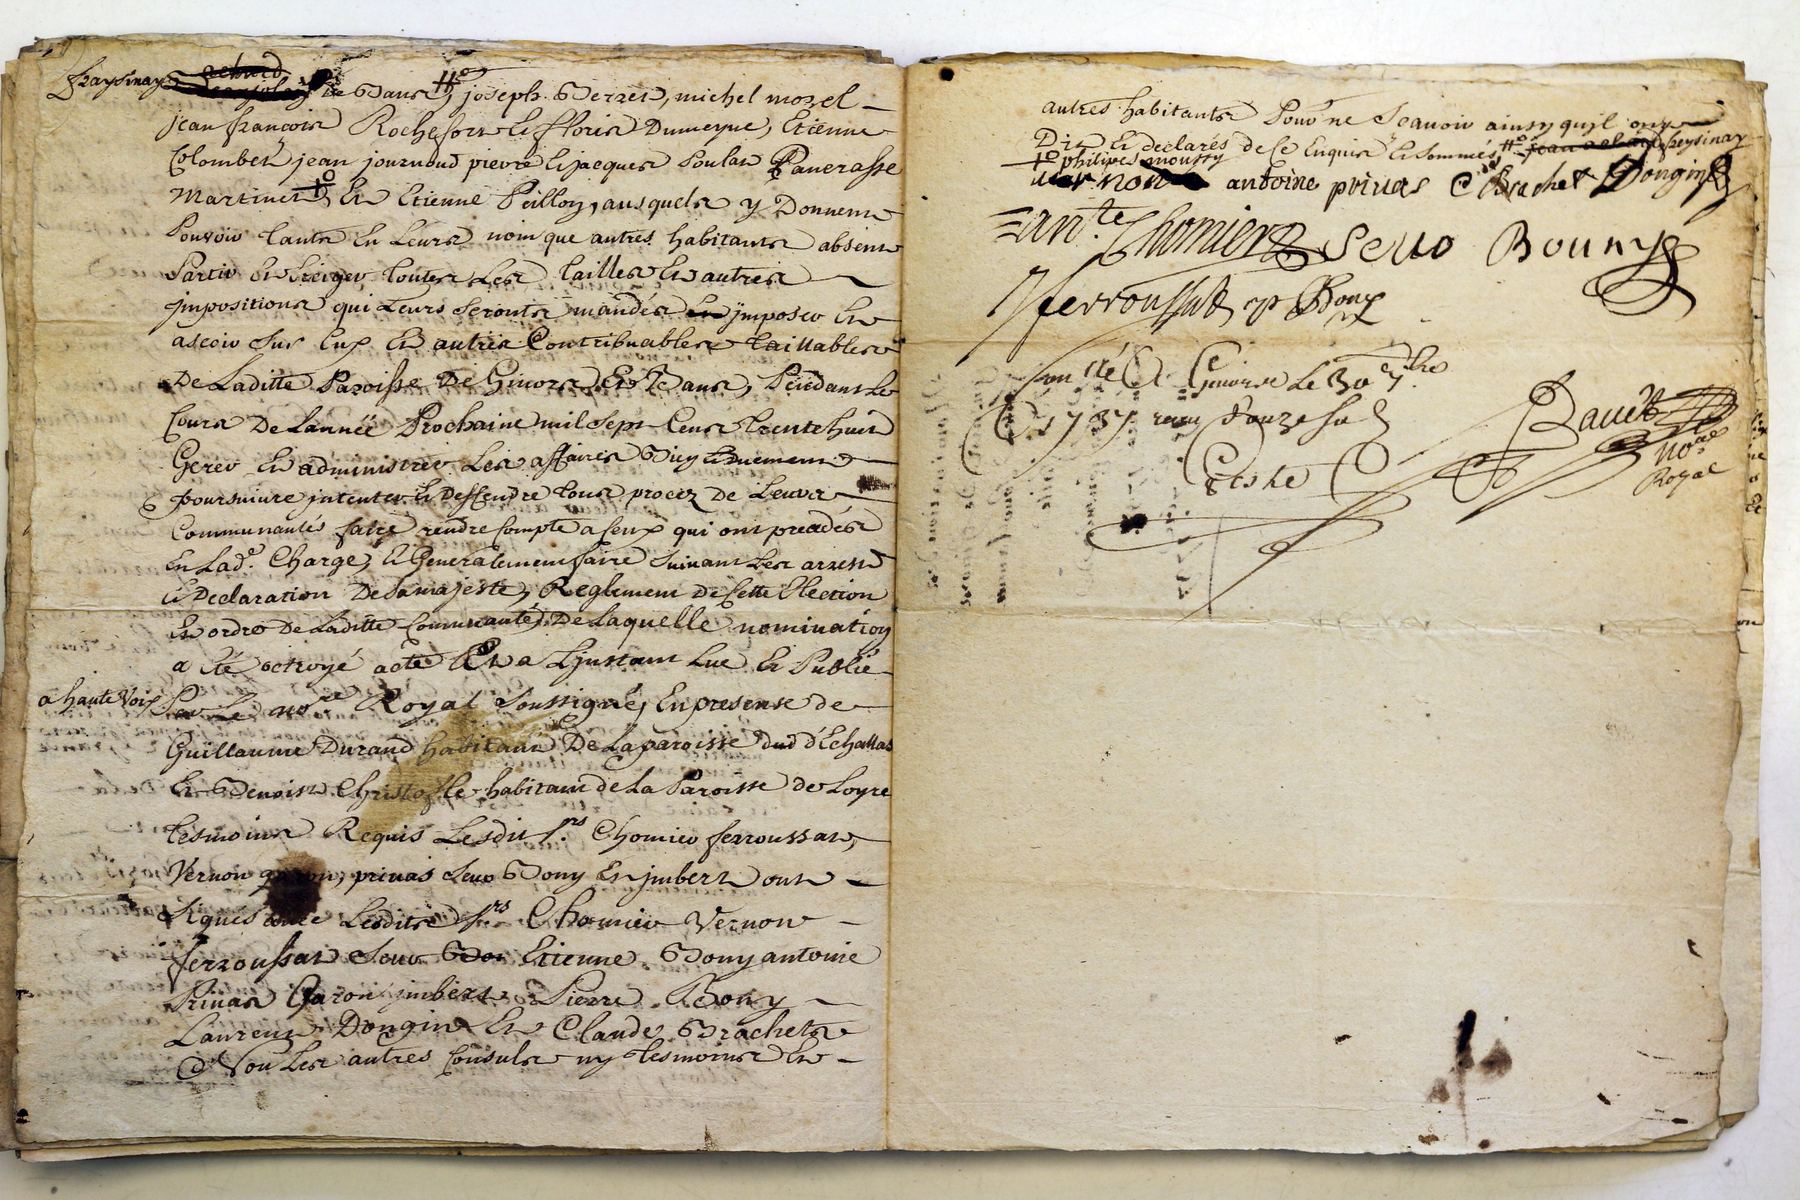 freysinay de Bans, joseph Berret, michel morel
jean francois Rochefort & floris Dumeyne, Etienne
Colombet, jean journoud pierre & jacques Poulat Pancrasse
Martinet, Et Etienne Peillon, ausquels y Donnent
Pouvoir tants En Leurs nom que autres habitants absent
Partir Et Exiger toutes Les tailles Et autres
jmpositions qui Leurs seronts mandés jmposer Et
ascoir sur Eux Et autres Contribuables taillables
De Laditte Paroisse De Givors Et Bans, Pendant Le
Cours De Lannéé Prochaine mil sept Cens trente huit
Gerer Et administrer Les affaires Bien & Duement
poursuivre jntenter & Deffendre tous procez De Leurs
Communautés faire rendre Compte a Ceux qui ont precedés
En Lad.e Charge, & Generalement faire suivant Les arrest
& Declaration De Sa majeste, Reglement de Cette Election
Et ordre De Laditte Communauté, De Laquelle nomination
a été octroyé acte Et a Ljnstant Lue Et Publié
a haute Voix Par Le no.re Royal Soussigné, En presense de
Guillaume Durand habitant De La paroisse dud d'Echallas
Et Benoist Christofle habitant de La Paroisse de Loyre
tesmoins Requis Lesdit S.rs Chomier ferroussat,
Vernon garon, privas seuo Bony Et jmbert ont
Signés Lesdits S.rs Chomier Vernon
ferroussat Seuo Etienne Bony antoine
Privas Garon jmbert Pierre Bony
Laurent Dongin Et Claude Brachet
Et Non Les autres Consuls ny tesmoins Et
autres habitants Pour ne Scavoir ainsy quyl ont
Dit Et declarés de Ce Enquis & sommés freysinay
philipes moussy
vernon antoine privas C Brachet Dongin
ant.e Chomier seuo Bouny
ferroussat p Bony
Conllé A Givors Le 30 7bre
1737 recu douze sols
Teste
Bauet
no.re
Royal